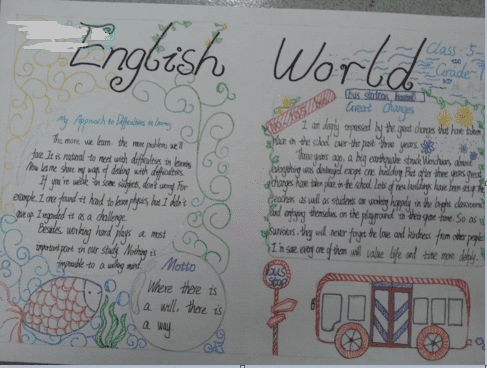 English World
Class 5
Grade 7
My Approach to Difficulties in Learning
The more we learn, the more problem we'll
face. It is natural to meet with difficulties in learning.
Now let me share my way of dealing with difficulties.
If you're weak in some subjects, don't worry. For
example, I once found it hard to learn physics, but I didn't
give up. I regarded it as a challenge.
Besides, working hard plays a most
important part in our study. Nothing is
impossible to a willing mind.
Motto
Where there is
a will, there is
a way.
Great Changes
I am deeply impressed by the great changes that have taken
place in the school over the past three years.
Three years ago, a big earthquake struck Wenchuan, almost
everything was destroyed except one building. But after three years great
changes have taken place in the school. Lots of new buildings have been set up. The
teachers as well as students are working happily in the bright classrooms
and enjoying themselves on the playground in their spare time. So as
survivors, they will never forget the love and kindness from other people.
I'm sure every one of them will value life and time more deeply.
bus
stop